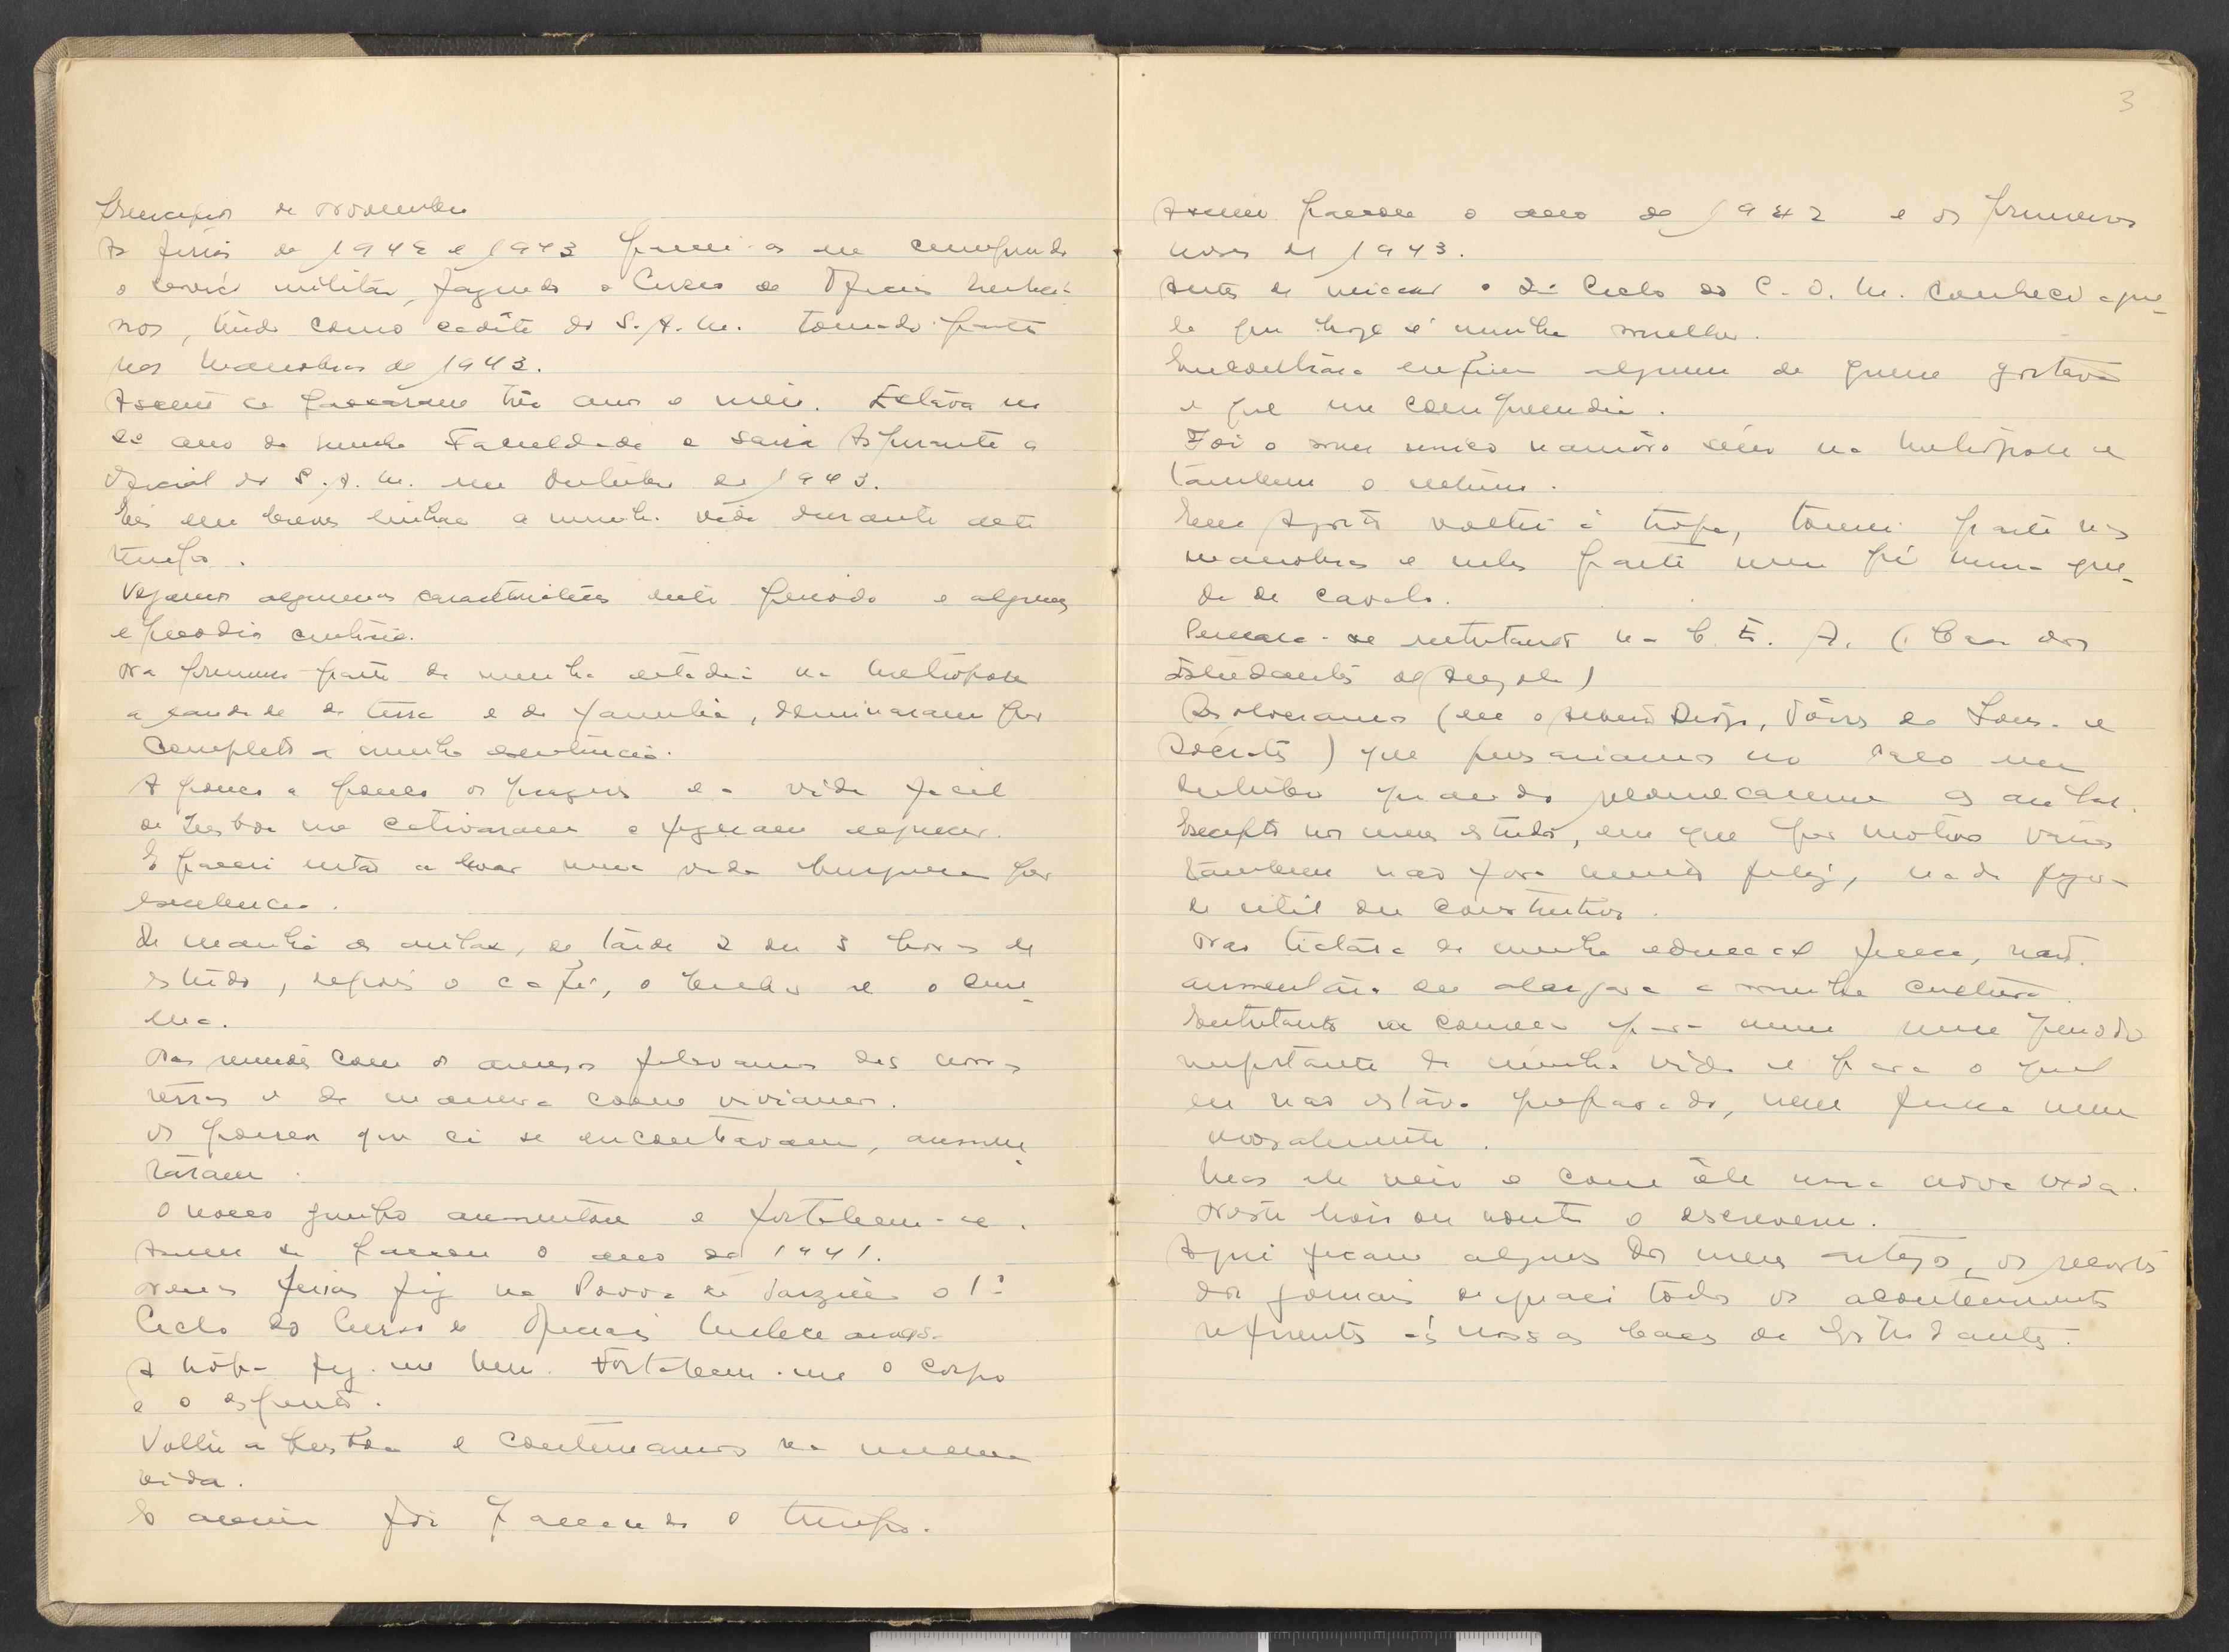 Princípios de Novembro
As férias de 1942 e 1943 passei-as em cumprindo
o serviço militar, fazendo o Curso de Oficiais Milicia-
nos, tendo como cadete do S.A.M. tomado parte
nas Manobras de 1943.
Assim se passaram três anos e meio. Estava no
2º ano da minha Faculdade e saira Aspirante a
Oficial do S.A.M. em Outubro de 1943.
Eis em breves linhas a minha vida durante este
tempo.
Vejamos algumas características deste periodo e alguns
episodios
Na primeira parte da minha estadia na Metrópole
a saudade da terra e da familia, dominaram por
completo a minha existência.
A pouco e pouco os prazeres e a vida facil
de Lisboa me cativaram e fizeram esquecer.
E passei então a levar uma vida burguesa por
excelencia.
De manhã as aulas, de tarde 2 ou 3 horas de
estudo, depois o café, o bilhar e o cine-
ma.
Nas reuniões com os amigos falavamos das nossas
terras e da maneira como viviamos.
Os poucos que cá se encontravam, aumen-
taram.
O nosso grupo aumentou e fortaleceu-se.
Assim se passou o ano de 1941.
Nessas ferias fiz na Povoa de Varzim o 1º
Ciclo do Curso de Oficiais Milicianos.
A tropa fez-me bem. Fortaleceu-me o corpo
e o espirito.
Voltei a Lisboa e continuamos na mesma
vida.
E assim foi passando o tempo.
3
Assim passou o ano de 1942 e os primeiros
meses de 1943.
Antes de iniciar o 2º Ciclo do C.O.M. conheci aque-
la que hoje é minha mulher.
Encontrára enfim alguem de quem gostava
e que me compreendia.
Foi o meu unico namoro sério na Metrópole e
tambem o ultimo.
Em Agosto voltei à tropa, tomei parte nas
manobras e nelas parti um pé numa que-
da de cavalo.
Pensara-se entretanto na C.E.A. (Casa dos
Estudantes de Angola)
Resolveramos (eu o Alberto Diogo, Tórres de Sousa e
Sócrates) que pensariamos no caso em
Outubro quando recomeçassem as aulas.
Excepto nos meus estudos, em que por motivos varios
tambem não fora muito feliz, nada fizera
de util ou construtivo.
Não tratára da minha educação fisica, não
aumentára ou alargara a minha cultura.
Entretanto ia começar para mim um periodo
importante da minha vida e para o qual
eu não estáva preparado, nem fisica nem
moralmente.
Mas ele veio e com êle uma nova vida.
Neste livro ou noutro o escreverei.
Aqui ficam alguns dos meus artigos, os recortes
dos jornais e quasi todos os acontecimentos
referentes às nossas Casas de Estudantes.